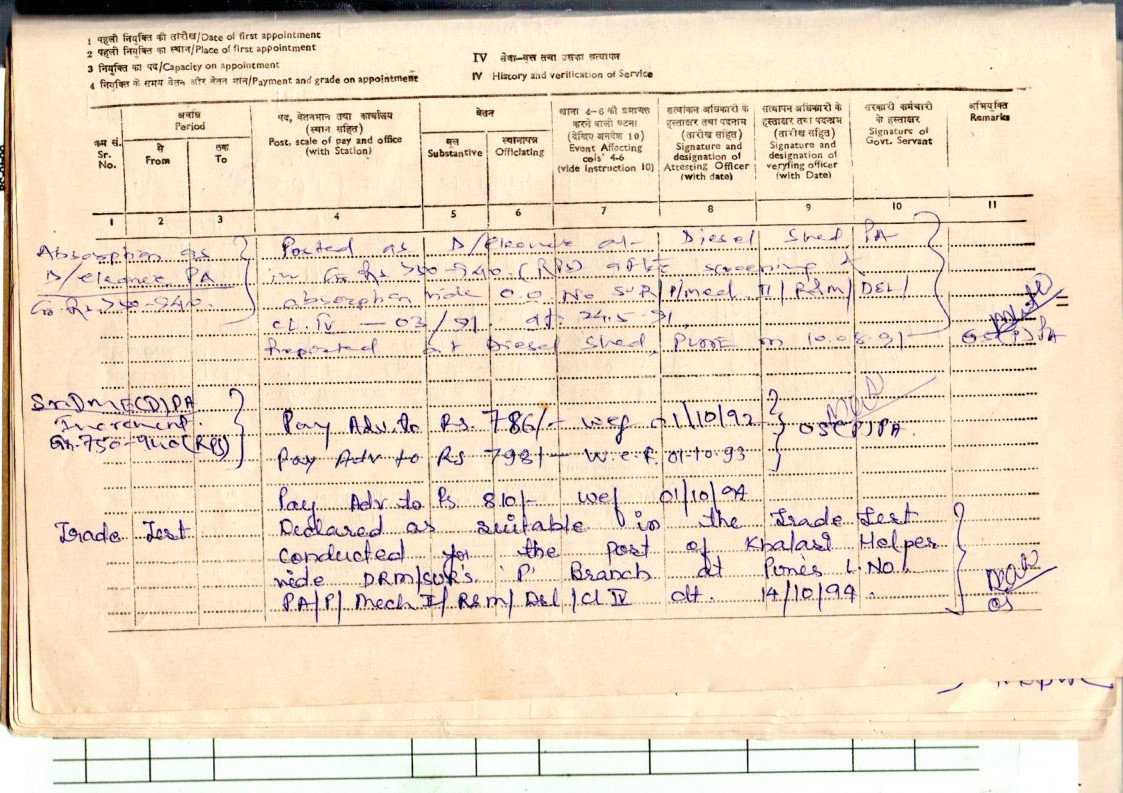 1 पहली नियुक्ति की तारीख/Date of first appointment
2 पहली नियुक्ति का स्थान/Place of first appointment
3 नियुक्ति का पद/Capacity on appointment
4 नियुक्ति के समय वेतन और वेतन मान/Payment and grade on appointment
IV सेवा-वृत्त तथा उसका सत्यापन
IV History and verification of Service
क्रम सं. Sr. No.
अवधि Period
से From
तक To
पद, वेतनमान तथा कार्यालय (स्थान सहित) Post, scale of pay and office (with Station)
वेतन
मूल Substantive
स्थानापन्न Officiating
खाना 4-6 को प्रभावित करने वाली घटना (देखिए अनुदेश 10) Event Affecting cols' 4-6 (vide instruction 10)
सत्यांकन अधिकारी के हस्ताक्षर तथा पदनाम (तारीख सहित) Signature and designation of Attesting Officer (with date)
सत्यापन अधिकारी के हस्ताक्षर तथा पदनाम (तारीख सहित) Signature and designation of veryfing officer (with Date)
सरकारी कर्मचारी के हस्ताक्षर Signature of Govt. Servant
अभियुक्ति Remarks
1 2 3 4 5 6 7 8 9 10 11
Absorption as
D/cleaner PA
Gr. Rs. 750-940.
Posted as D/cleaner at- Diesel Shed PA
in Gr. Rs 750-940. (RPS) after screening &
absorption vide O.O. No SUR/P/med. II/R&M/DEL/
CL. IV - 03/91. dt. 24.5.91
Reported at Diesel Shed, PUNE on 10.08.91
OS(P)PA
Sr.DME(D)PA
Increment.
Gr.750-940(RPS)
Pay Adv. to Rs. 786/- wef 01/10/92
OS(P)PA.
Pay Adv to Rs 798/- w.e.f. 01-10-93
Pay Adv. to Rs 810/- wef 01/10/94
Trade Test
Declared as suitable in the Trade Test
conducted for the post of Khalasi Helper
vide DRM/SUR's 'P' Branch at Pune's L.No.
PA/P/Mech II/R&M/Dsl/Cl IV dt. 14/10/94.
OS